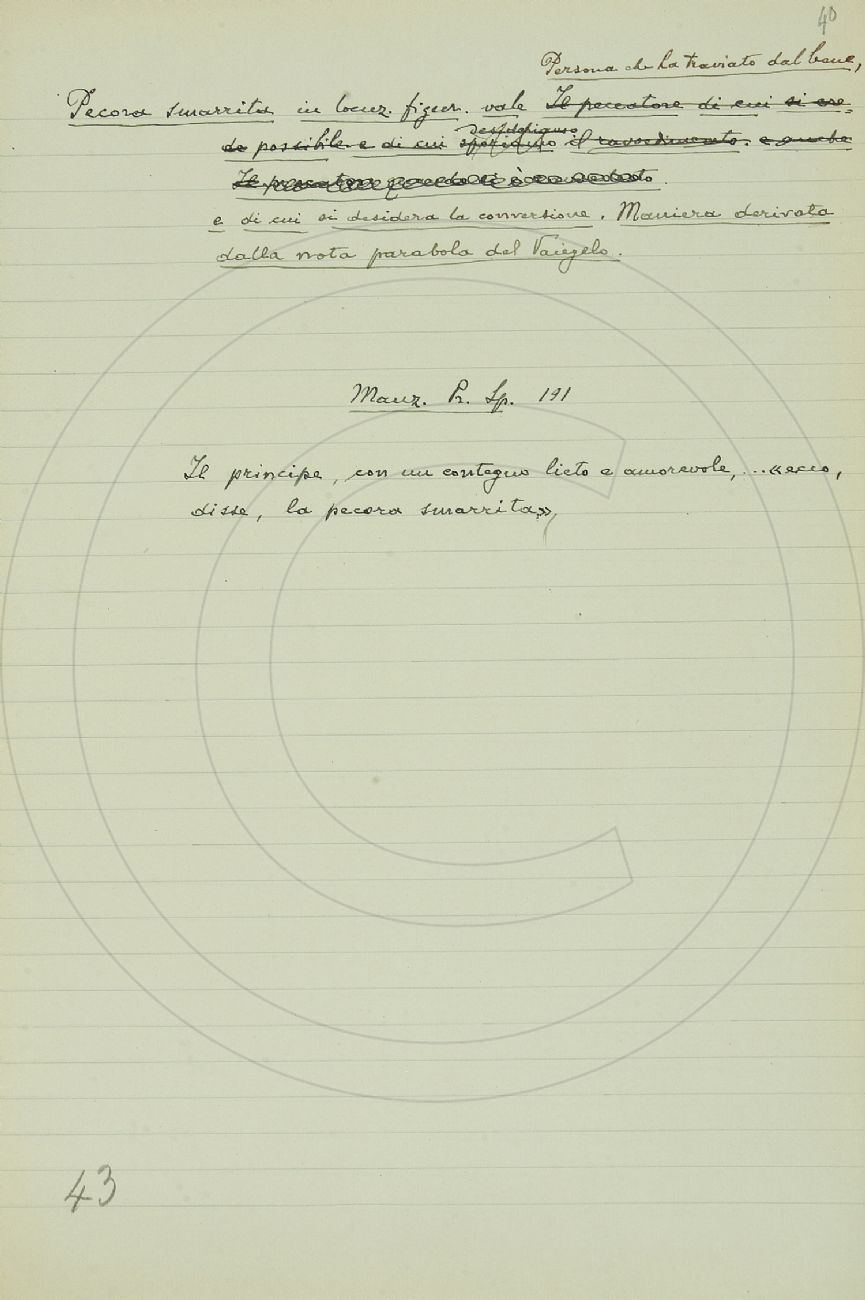 40
Persona che ha traviato dal bene,
Pecora smarrita in locuz. figur. vale Il peccatore di cui si cre-
de possibile e di cui speriamo il ravvedimento. e anche
Il peccatore quando si è ravveduto.
e di cui si desidera la conversione. Maniera derivata
dalla nota parabola del Vangelo.
Manz. Pr. Sp. 191
Il principe, con un contegno lieto e amorevole, ... «ecco,
disse, la pecora smarrita»,
43